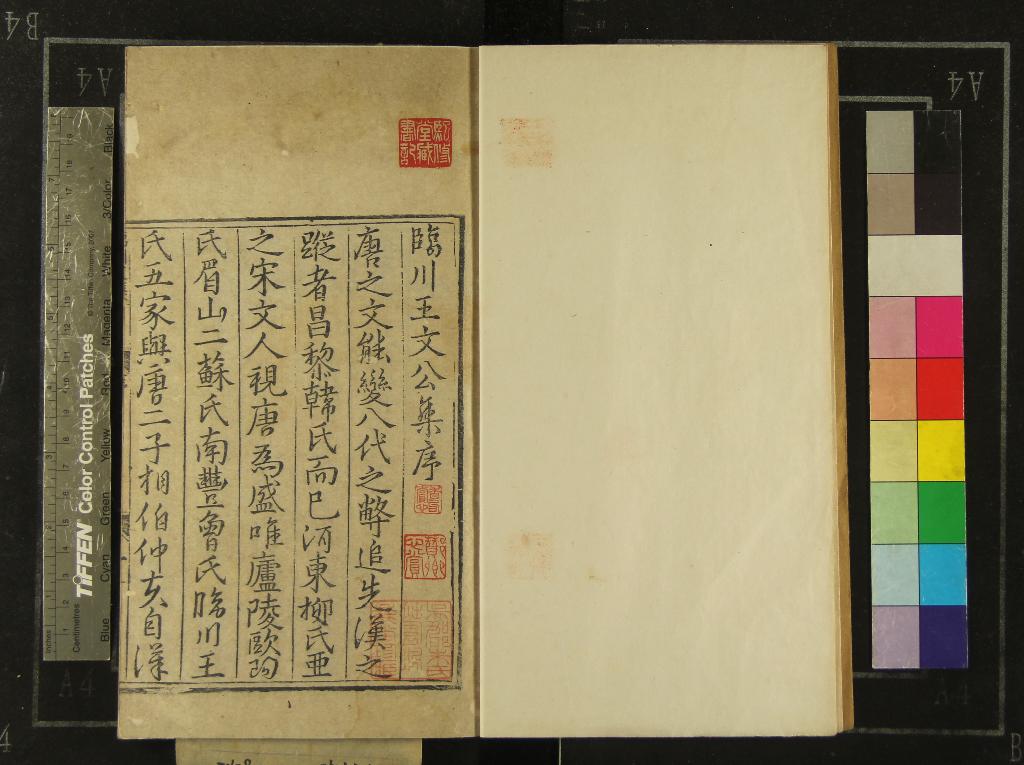 臨川王文公集序
唐之文能變八代之弊追先漢之
蹤者昌黎韓氏而已河東柳氏亞
之宋文人視唐為盛唯廬陵歐陽
氏眉山二蘇氏南豐曾氏臨川王
氏五家與唐二子相伯仲夫自漢
TIFFEN Color Control Patches
© The Tiffen Company, 2007
Inches
Centimetres
Blue Cyan Green Yellow Red Magenta White 3/Color Black
B4
A4
A4
A4
A4